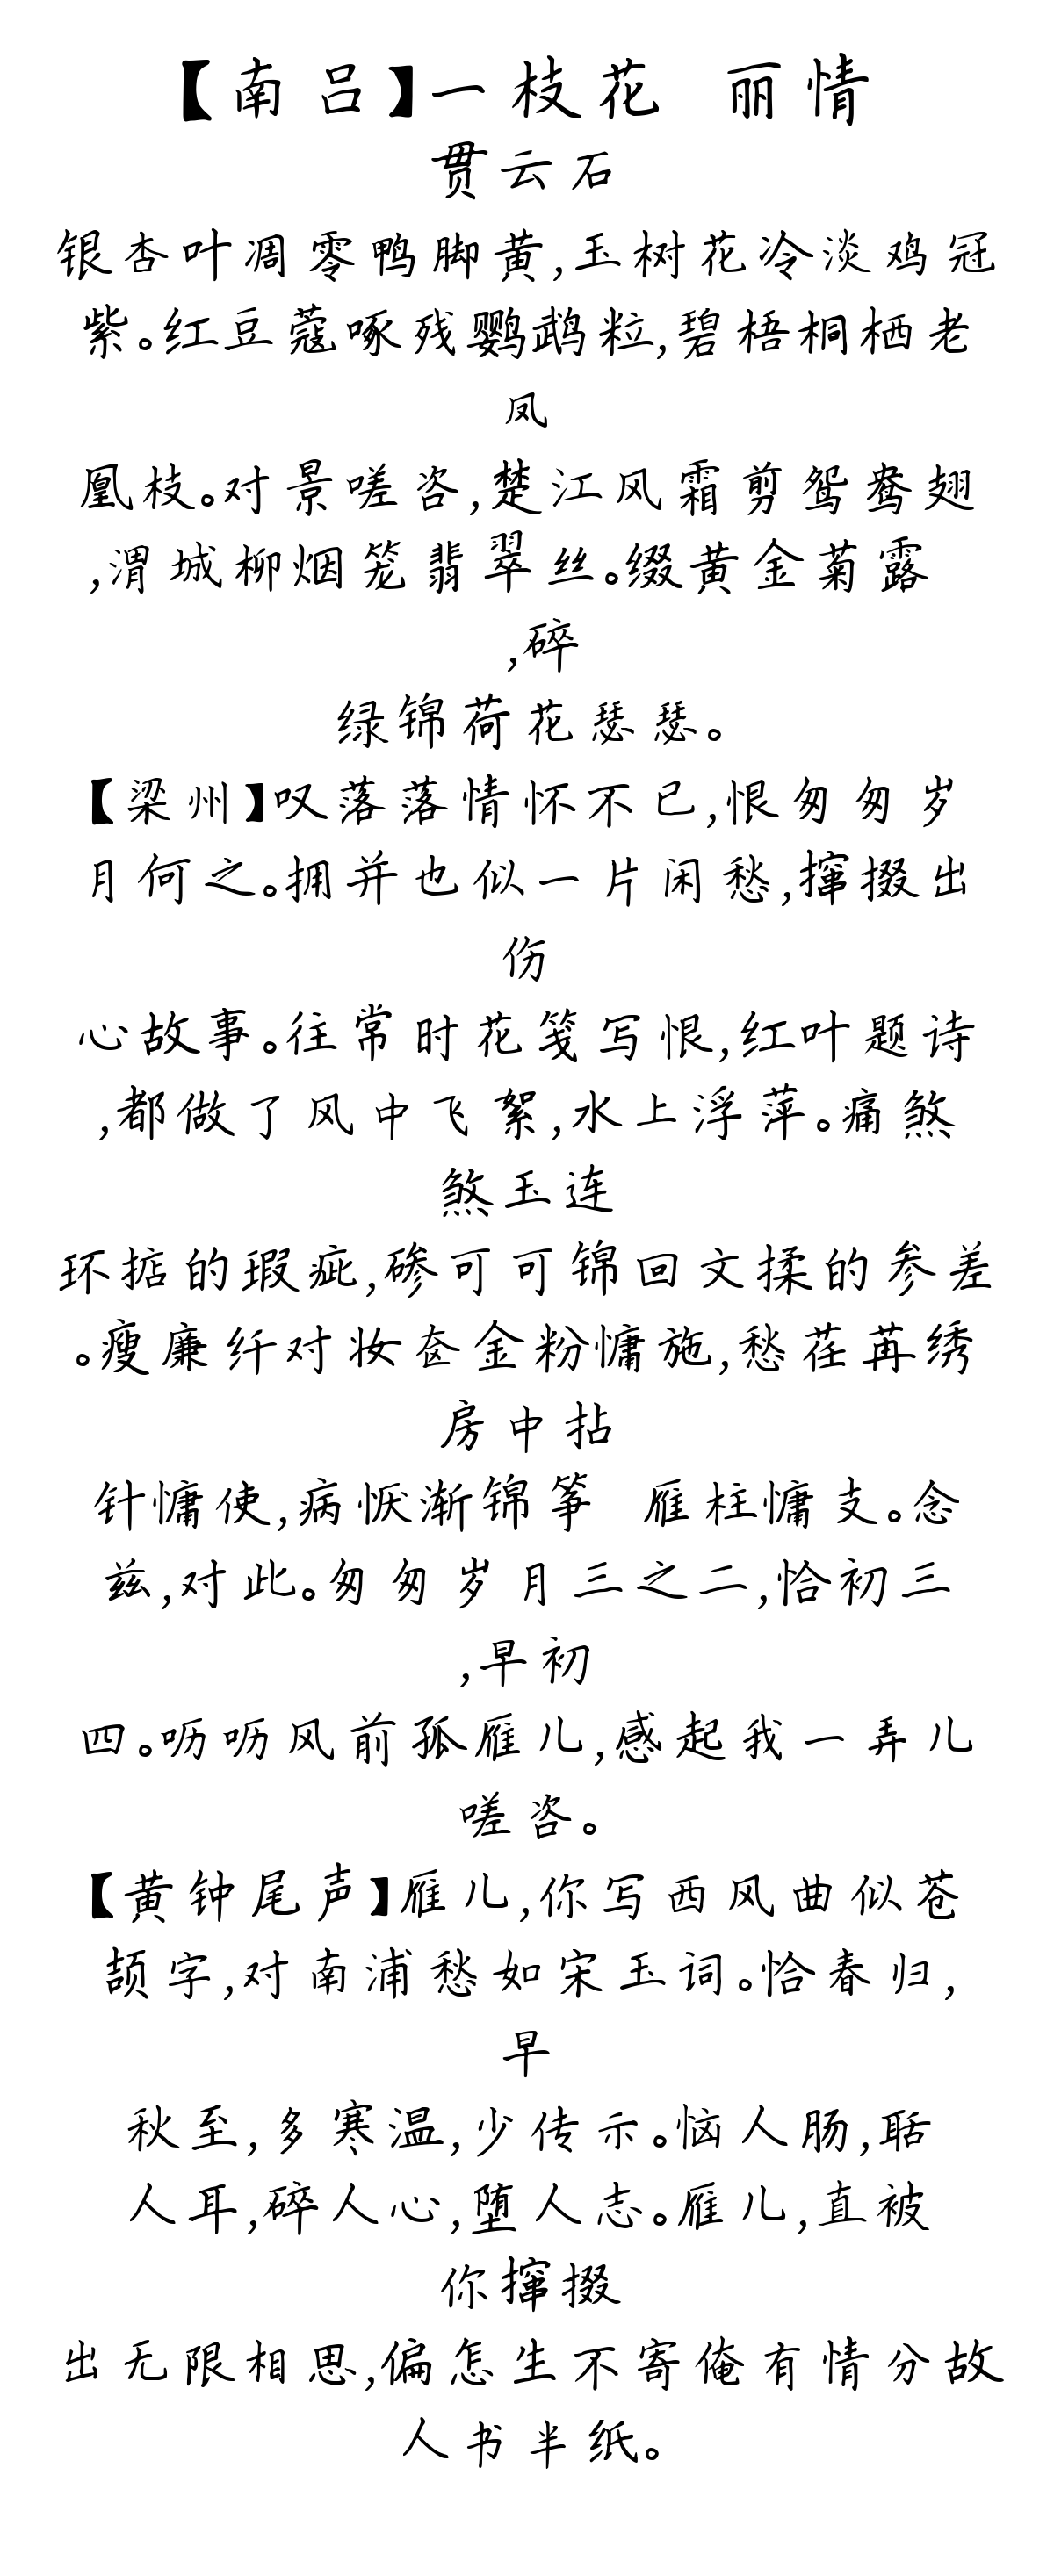 【南吕】一枝花 丽情
贯云石
银杏叶凋零鸭脚黄,玉树花冷淡鸡冠
紫。红豆蔻啄残鹦鹉粒,碧梧桐栖老
凤
凰枝。对景嗟咨,楚江风霜剪鸳鸯翅
,渭城柳烟笼翡翠丝。缀黄金菊露
,碎
绿锦荷花瑟瑟。
【梁州】叹落落情怀不已,恨匆匆岁
月何之。拥并也似一片闲愁,撺掇出
伤
心故事。往常时花笺写恨,红叶题诗
,都做了风中飞絮,水上浮萍。痛煞
煞玉连
环掂的瑕疵,碜可可锦回文揉的参差
。瘦廉纤对妆奁金粉慵施,愁荏苒绣
房中拈
针慵使,病恹渐锦筝 雁柱慵支。念
兹,对此。匆匆岁月三之二,恰初三
,早初
四。呖呖风前孤雁儿,感起我一弄儿
嗟咨。
【黄钟尾声】雁儿,你写西风曲似苍
颉字,对南浦愁如宋玉词。恰春归,
早
秋至,多寒温,少传示。恼人肠,聒
人耳,碎人心,堕人志。雁儿,直被
你撺掇
出无限相思,偏怎生不寄俺有情分故
人书半纸。